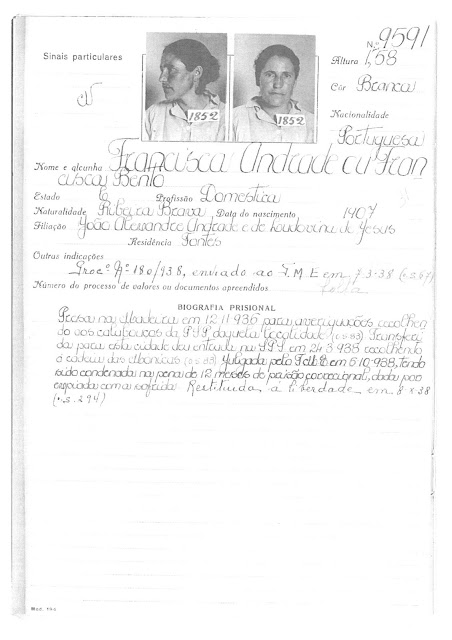 Nº 9591
Sinais particulares
Altura 1,58
Côr Branca
Nacionalidade
Portuguesa
1852
1852
Nome e alcunha Francisca Andrade ou Fran
cisca Bento
Estado C Profissão Domestica
Naturalidade Ribeira Brava Data do nascimento 1907
Filiação João Alexandre Andrade e de Loudovina de Jesus
Residência Fontes
Outras indicações
Procº Nº 180/938, enviado ao T.M.E em 7-3-38 (o.s.67)
Número do processo de valores ou documentos apreendidos
BIOGRAFIA PRISIONAL
Presa na Madeira em 12 11 936 para averiguações, recolhen
do aos calabouços da PSP daquela localidade (o.s.83) Transferi
da para esta cidade deu entrada na PSP em 24 3 938 recolhendo
à cadeia das Monicas (o.s.83) Julgada pelo em 5 10-938, tendo
sido condenada na pena de 12 meses de prisão correccional, dada por
expiada com a sofrida. Restituida á liberdade em 8-X-38
(o.s.294)
Mod.